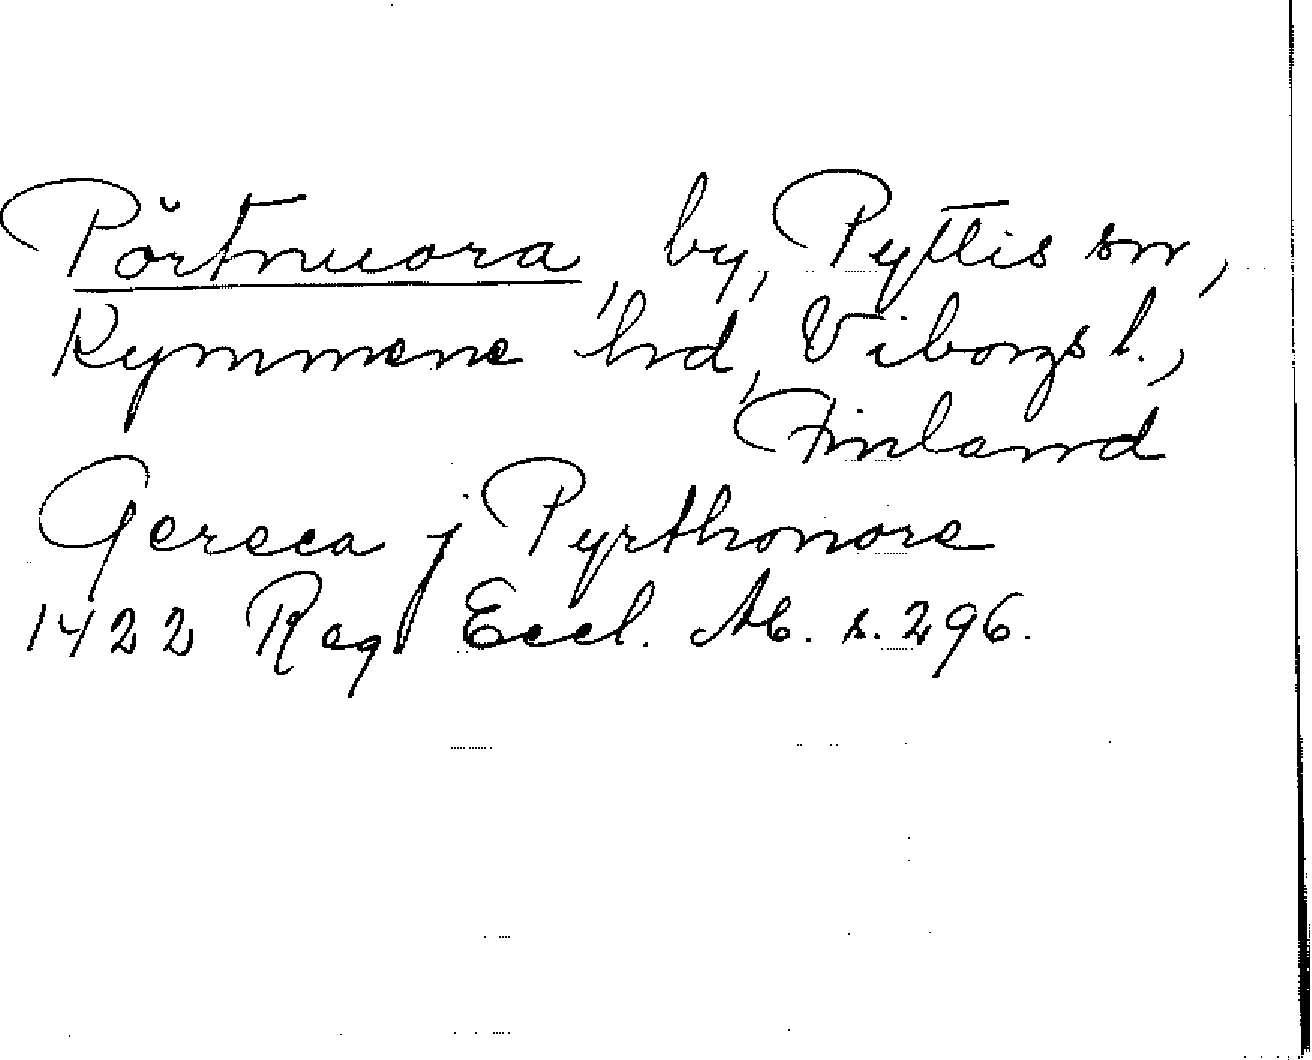 Pörtnuora, by, Pyttis sn,
Kymmene hrd, Viborgs l.,
Finland
Gereca j Pyrthonore
1422 Reg Eccl. Ab. s. 296.